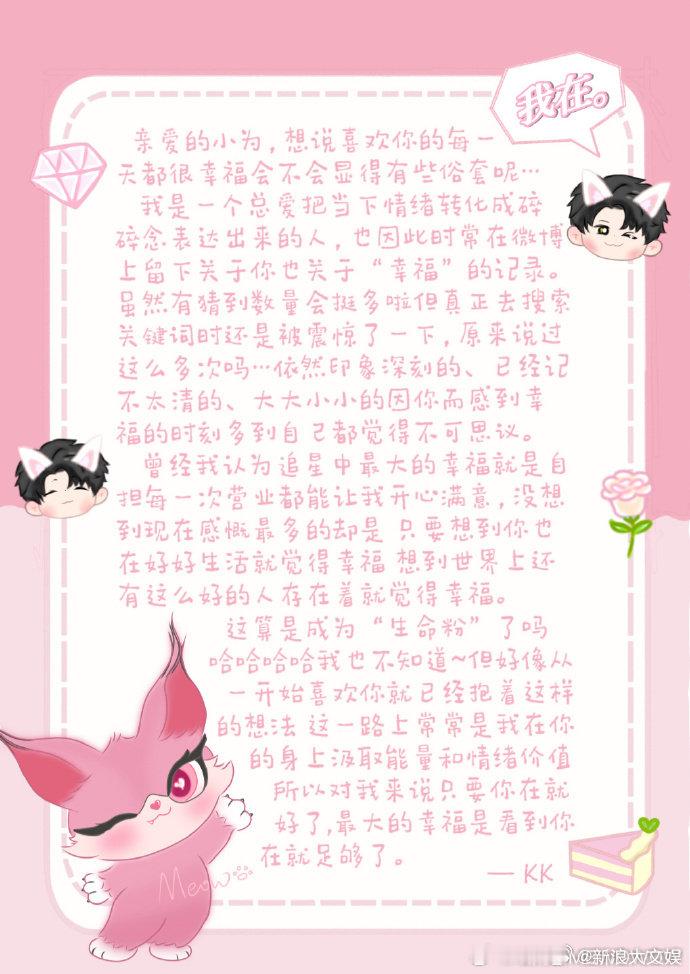 我在。
亲爱的小为，想说喜欢你的每一
天都很幸福会不会显得有些俗套呢…
我是一个总爱把当下情绪转化成碎
碎念表达出来的人，也因此时常在微博
上留下关于你也关于“幸福”的记录。
虽然有猜到数量会挺多啦但真正去搜索
关键词时还是被震惊了一下，原来说过
这么多次吗…依然印象深刻的、已经记
不太清的、大大小小的因你而感到幸
福的时刻多到自己都觉得不可思议。
曾经我认为追星中最大的幸福就是自
担每一次营业都能让我开心满意，没想
到现在感慨最多的却是 只要想到你也
在好好生活就觉得幸福 想到世界上还
有这么好的人存在着就觉得幸福。
这算是成为“生命粉”了吗
哈哈哈哈我也不知道~但好像从
一开始喜欢你就已经抱着这样
的想法 这一路上常常是我在你
的身上汲取能量和情绪价值
所以对我来说只要你在就
好了,最大的幸福是看到你
在就足够了。
— KK
Meow
@新浪大文娱